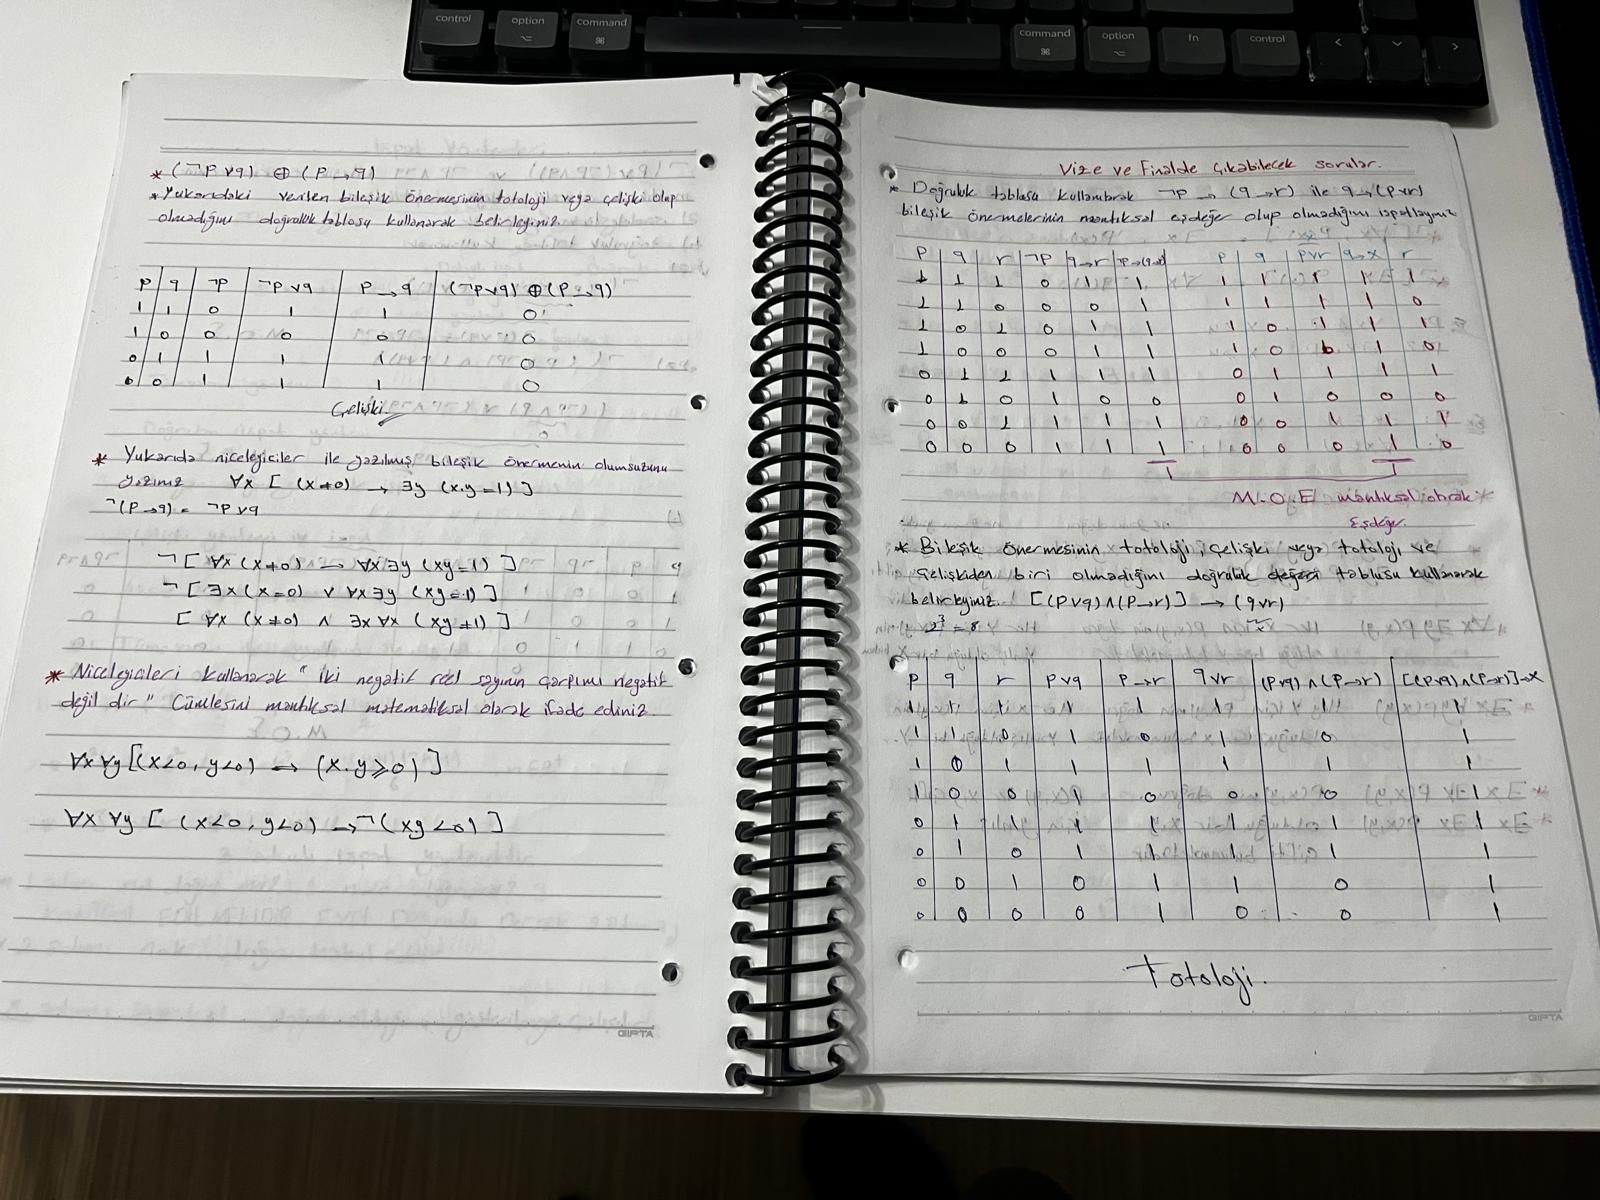 control
option
command
command
option
fn
control
* (¬p∨q) ⊕ (p→q)
* Yukarıdaki verilen bileşik önermesinin totoloji veya çelişki olup
olmadığını doğruluk tablosu kullanarak belirleyiniz.
p q ¬p ¬p∨q p→q (¬p∨q) ⊕ (p→q)
1 1 0 1 1 0
1 0 0 0 0 0
0 1 1 1 1 0
0 0 1 1 1 0
Çelişki
* Yukarıda niceleyiciler ile yazılmış bileşik önermenin olumsuzunu
yazınız ∀x [ (x≠0) → ∃y (x.y=1) ]
¬(p→q) = ¬p∨q
¬[ ∀x (x≠0) → ∀x ∃y (xy=1) ]
¬[ ∃x (x=0) ∨ ∀x ∃y (xy=1) ]
[ ∀x (x≠0) ∧ ∃x ∀x (xy≠1) ]
* Niceleyicileri kullanarak " İki negatif reel sayının çarpımı negatif
değil dir " Cümlesini mantıksal matematiksel olarak ifade ediniz.
∀x ∀y [(x<0, y<0) → (x.y≥0) ]
∀x ∀y [ (x<0, y<0) → ¬(xy<0) ]
GIPTA
Vize ve Finalde çıkabilecek sorular.
* Doğruluk tablosu kullanılarak ¬p → (q→r) ile q→(p∨r)
bileşik önermelerinin mantıksal eşdeğer olup olmadığını ispatlayınız
p q r ¬p q→r ¬p→(q→r) p q p∨r q→x r
1 1 1 0 1 1 1 1 1 1 1
1 1 0 0 0 1 1 1 1 1 0
1 0 1 0 1 1 1 0 1 1 1
1 0 0 0 1 1 1 0 1 0
0 1 1 1 1 1 0 1 1 1 1
0 1 0 1 0 0 0 1 0 0 0
0 0 1 1 1 1 0 0 1 1 1
0 0 0 1 1 1 0 0 0 1 0
M.O.E mantıksal olarak
Eşdeğer.
* Bileşik önermesinin totoloji, çelişki veya totoloji ve
çelişkiden biri olmadığını doğruluk değeri tablosu kullanarak
belirleyiniz. [(p∨q)∧(p→r)] → (q∨r)
2³ = 8 x
p q r p∨q p→r q∨r (p∨q)∧(p→r) [(p∨q)∧(p→r)]→x
1 1 1 1 1 1 1 1
1 1 0 1 0 1 0 1
1 0 1 1 1 1 1 1
1 0 0 1 0 0 0 1
0 1 1 1 1 1 1 1
0 1 0 1 1 1 1 1
0 0 1 0 1 1 0 1
0 0 0 0 1 0 0 1
Totoloji.
GIPTA